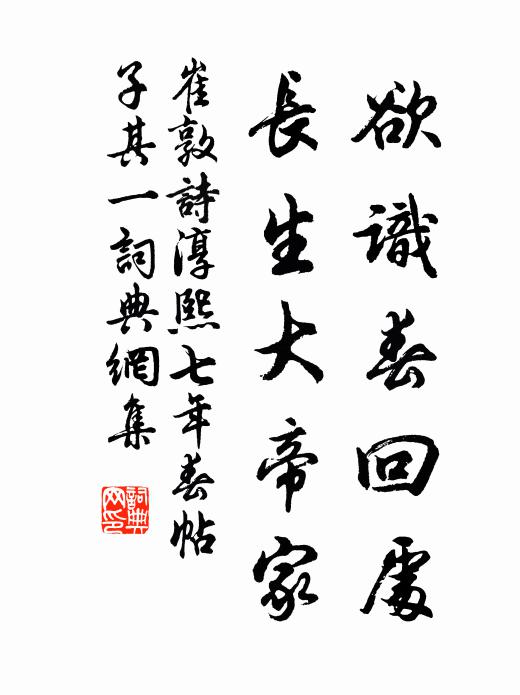 欲識春回處
長生大帝家
崔敦詩淳熙七年春帖
子其一詞典網集
詞典
网印